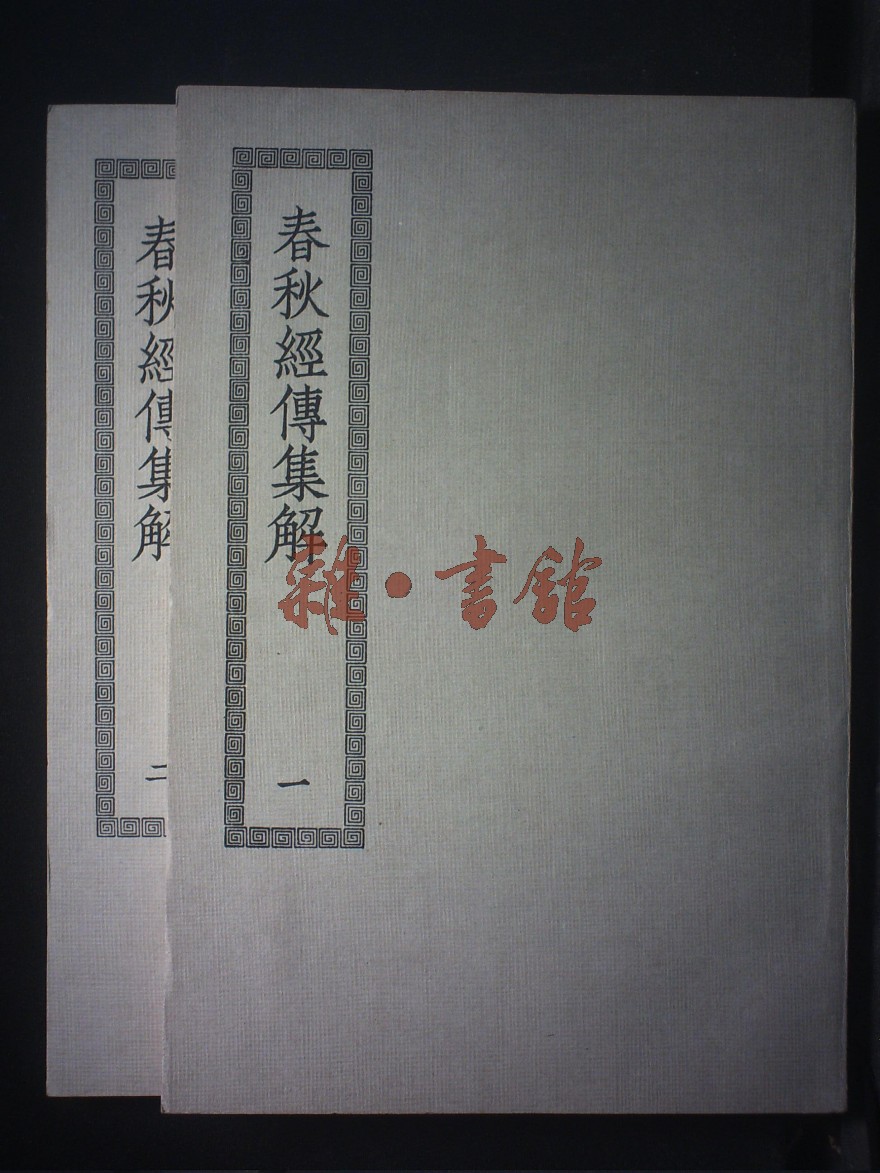 春秋經傳集解
一
春秋經傳集解
二
雜·書館